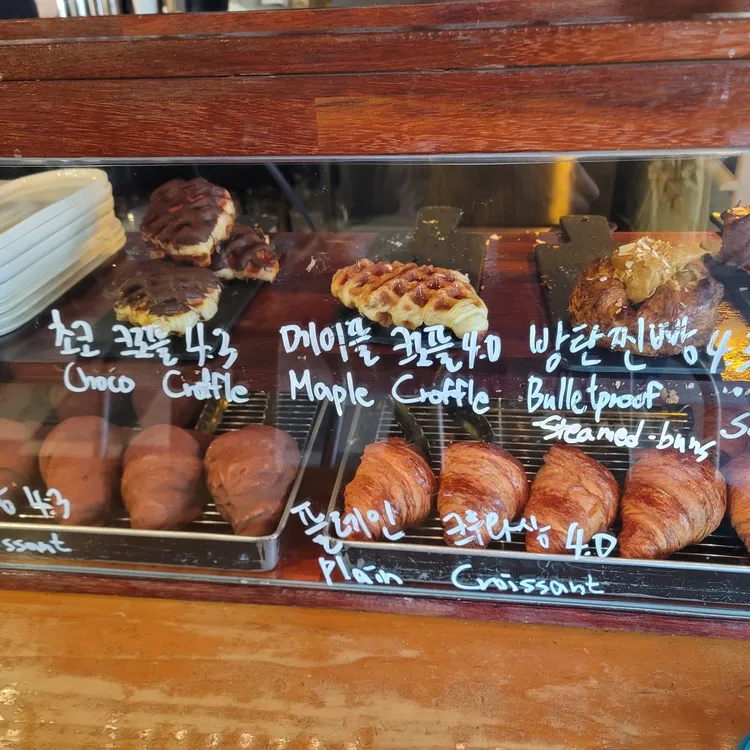 초코 크로플 4.3
Choco Croffle
메이플 크로플 4.0
Maple Croffle
방탄찐빵 4.3
Bulletproof
Steamed-buns
4.3
ssant
플레인 크루와상 4.0
Plain Croissant